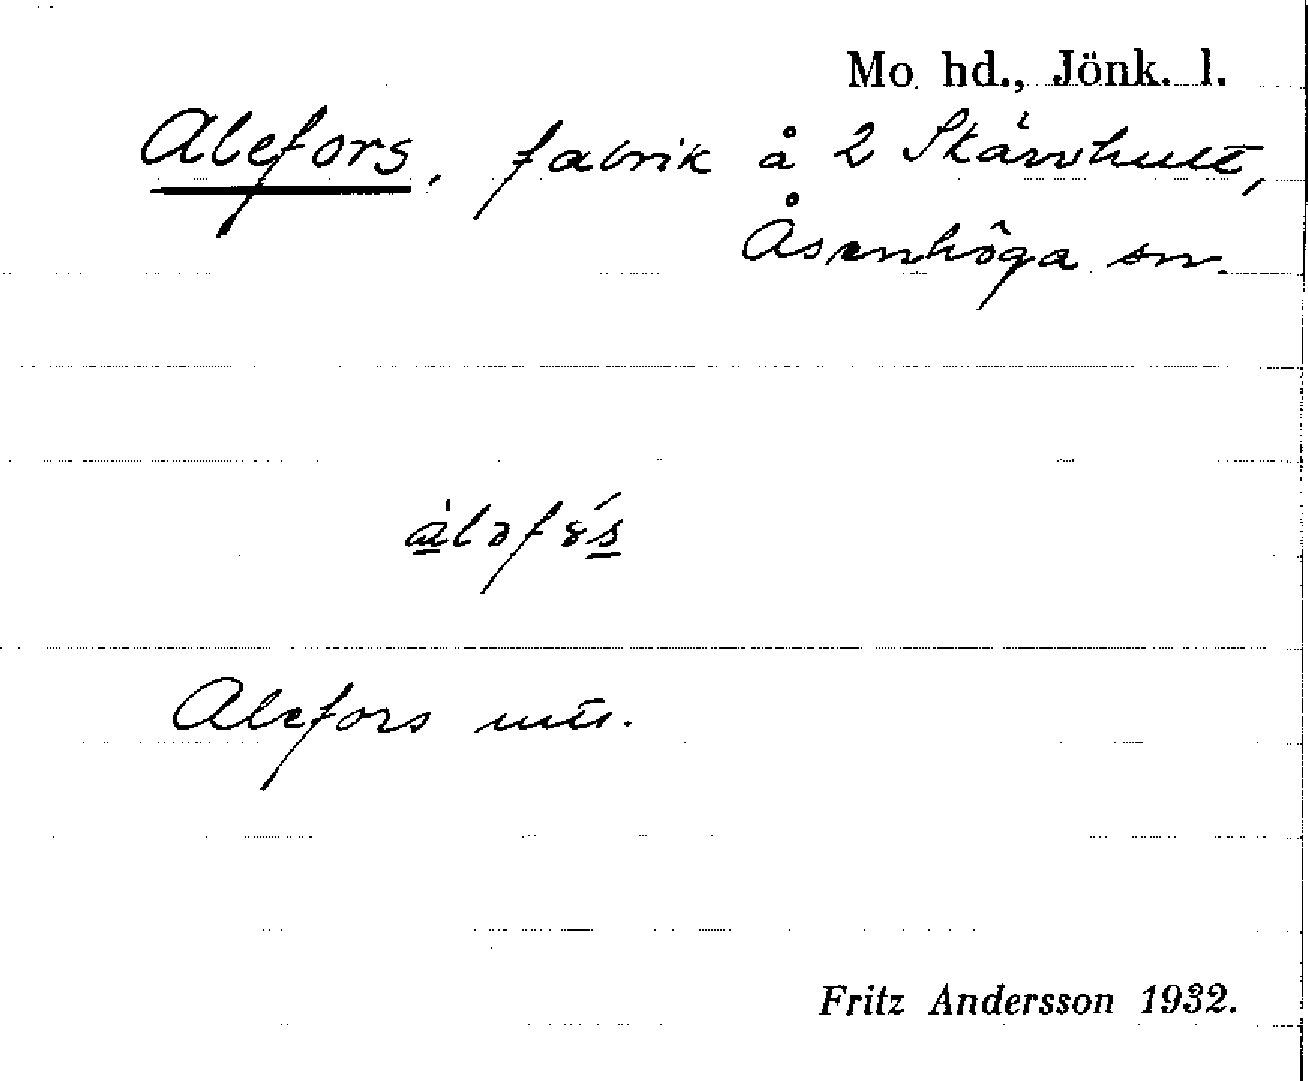 Mo hd., Jönk. l.
Alefors, fabrik å 2 Skärvhult,
Åsenhöga sn.
Alefors utt.
Fritz Andersson 1932.